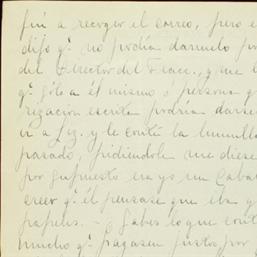 fui a recoger el correo, pero e
dijo qe. no podia darmelo po
del Director del Ferr., y me l
qe. sólo a el mismo o persona q
rización escrita podria darse
ir a Lz. y le conté la humilla
pasado, pidiendole me diese
por supuesto era yo un Cabal
creer qe. él pensase que iba q
papeles. - Sabes lo que cont
mucho qe. pagasen justos por